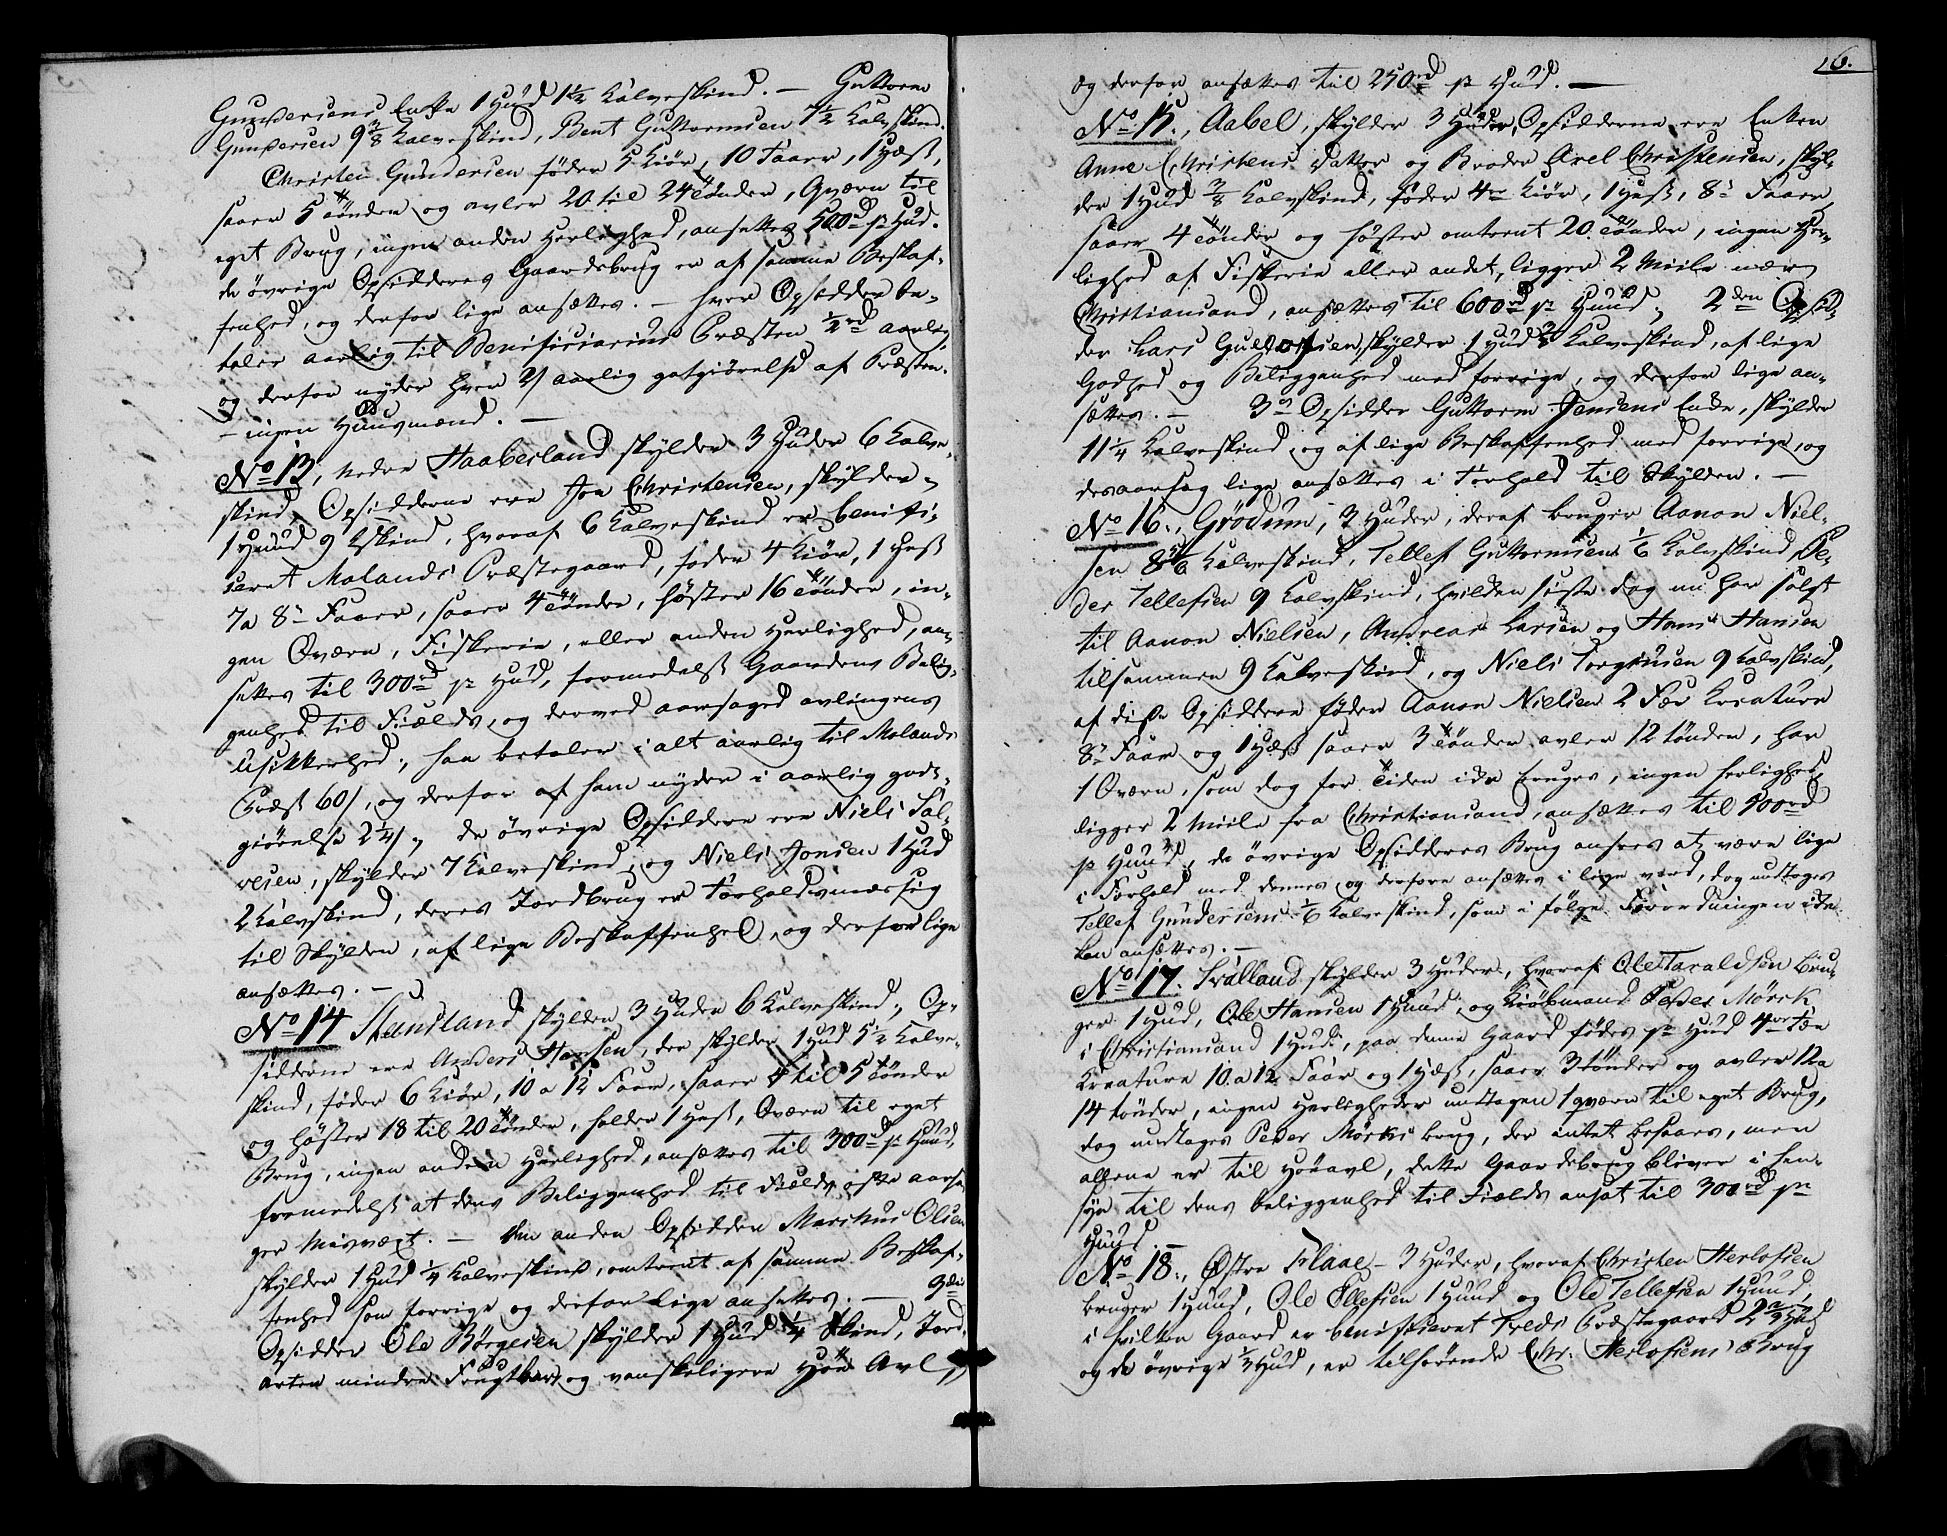 Gundersens Enke 1 Huud 1½ Kalveskind. — Guttorm
Gundersen 9⅜ Kalveskind, Bent Guttormsen 7½ Kalvskind.
Christen Gundersen föder 5 Kiör, 10 Faar, 1 Hæst,
saaer 5 Tönder og avler 20 til 24 Tönder, Qværn til
eget Brug, ingen anden Herlighed, ansettes 500rd pr Hud.
de övrige Opsidderes Gaardsbrug er af samme Beskaf-
fenhed, og derfor lige ansættes. — hver Opsidder be-
taler aarlig til Benificiarius Præsten ½rd aarlig
og derfor nyder hver 2/ aarlig godtgiörelse af Præsten.
— ingen Huusmænd. —
No 13, neder Haaberland skylder 3 Huder 6 Kalve-
skind, Opsidderne ere Jon Christensen, skylder
1 Huud 9 Skind, hvoraf 6 Kalveskind er benifi-
ceret Molands Præstegaard, föder 4 Kiör, 1 Hest
7 a 8 Faar, saaer 4 Tönder, höster 16 Tönder, in-
gen Qværn, Fiskerie, eller anden Herlighed, an-
settes til 300rd pr Hud, formedelst Gaardens Belig-
genhed til Fields, og derved aarsaged avlingens
Usikkerhed; han betaler i alt aarlig til Molands
Præst 60/, og derfor af ham nyder i aarlig godt-
giörelse 2¼/, de övrige Opsiddere ere Niels Sal-
vesen, skylder 7 Kalveskind, og Niels Jonsen 1 Hud
2 Kalvskind, deres Jordbrug er forholdsmæssig
til Skylden, af lige Beskaffenhed, og derfor lige
ansættes. —
No 14 Standland skylder 3 Huder 6 Kalveskind, Op-
sidderne ere Anders Hansen, der skylder 1 Hud 5½ Kalve-
skind, föder 6 Kiör, 10 a 12 Faar, saaer 4 til 5 Tönder
og höster 18 til 20 Tönder, holder 1 Hest, Qværn til eget
Brug, ingen anden Herlighed, ansettes til 300rd pr Huud,
formedelst at dens Beliggenhed til Fields ofte aarsa-
ger Misvæxt. — den anden Opsidder Marthus Olsen
skylder 1 Hud ¼ Kalveskind, omtrent af samme Beskaf-
fenhed som forrige og derfor lige ansettes. — 3die
Opsidder Ole Börgesen skylder 1 Hud ¼ Skind, Jord-
arten mindre Frugtbar og vanskeligere Höe Avl,
6.
og derfor ansættes til 250rd pr Hud. —
No 15., Aabel, skylder 3 Huder, Opsidderne ere Enken
Anne Christens Datter og Broder Axel Christensen, skyl-
der 1 Hud ⅜ Kalvskind, föder 4re Kiör, 1 Hest, 8 Faar,
saaer 4 Tönder og höster omtrent 20 Tönder, ingen Her-
lighed af Fiskerie eller andet, ligger 2 Miile nær
Christiansand, ansættes til 600rd pr Huud, 2den Opsid-
der Lars Gulbrandsen, skylder 1 Hud ⅜ Kalveskind, af lige
Godhed og Beliggenhed med forrige, og derfor lige an-
sættes. — 3die Opsidder Guttorm Jensens Enke, skylder
11¼ Kalveskind, og af lige Beskaffenhed med forrige, og
desaarsag lige ansættes i Forhold til Skylden. —
No 16., Grödum, 3 Huder, deraf bruger Aanon Niel-
sen 8⅚ Kalveskind, Tellef Guttormsens ⅙ Kalvskind, Pe-
der Tellefsen 9 Kalvskind, hvilken sidste dog nu har solgt
til Aanon Nielsen, Andreas Larsen og Hans Hansen
tilsammen 9 Kalveskind, og Niels Torgiusen 9 Kalvskind,
af disse Opsiddere föder Aanon Nielsen 2 Fæe Kreature
8 Faar og 1 Hæst, saaer 3 Tönder avler 12 tönder, har
1 Qværn, som dog for Tiden ikke bruges, ingen herlighed,
ligger 2 Miile fra Christiansand, ansættes til 500rd
pr Huud, de övrige Opsidderes Brug ansees at være lige
i Forhold med dennes og derfore ansættes i lige værd, dog undtages
Tellef Gundersens ⅙ Kalveskind, som i fölge Forordningen ikke
kan ansættes. —
No 17. Trælland skylder 3 Huder, hvoraf Ole Taraldsen bru-
ger 1 Hud, Ole Hansen 1 Huud, og Kiöbmand Peder Mörch
i Christiansand 1 Hud, paa denne Gaard födes pr Hud 4re Fæe
Kreature 10 a 12 Faar og 1 Hæst, saaer 3 tönder og avler 12 a
14 tönder, ingen Herligheder undtagen 1 qværn til eget Brug,
dog undtages Peder Mörchs brug, der intet besaaes, men
allene er til Höeavl, dette Gaardsbrug bliver i Hen-
syn til dens beliggenhed til Fields ansat til 300rd pr
Huud. —
No 18., Östre Flaae 3 Huder, hvoraf Christen Herlofsen
bruger 1 Huud, Ole Ellefsen 1 Huud og Ole Tellefsen 1 Huud,
i hvilken Gaard er benificeret Treds Præstegaard 2⅔ Hud
og de övrige ⅓ Hud, er tilhörende Chr. Herlofsens Brug